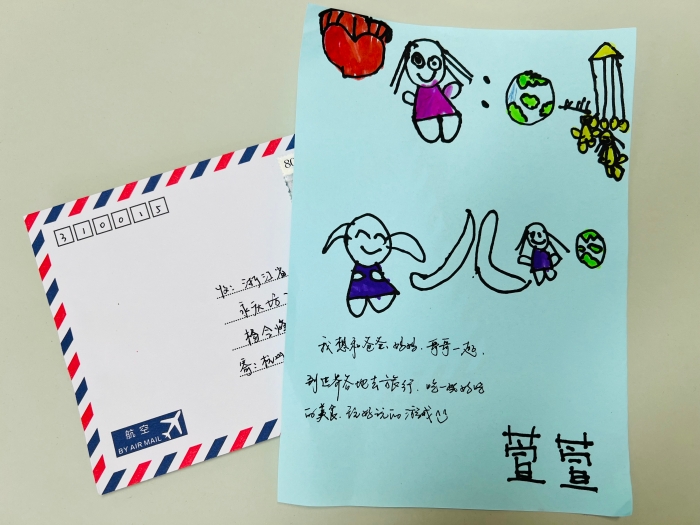 310015
80
收:浙江省
永庆坊
寄:杭州
航空
BY AIR MAIL
我想和爸爸、妈妈、哥哥一起,
到世界各地去旅行,吃一些好吃
的美食,玩好玩的游戏
萱萱